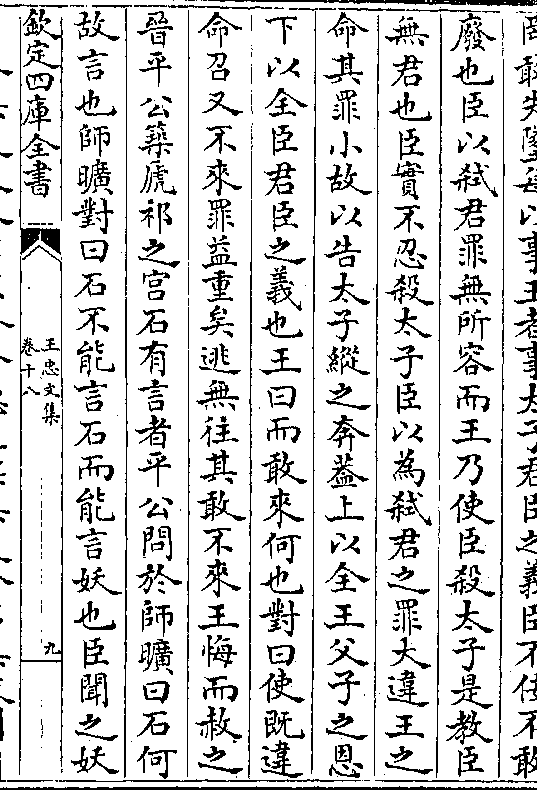 罔敢失墜每以事王者事太子君臣之義臣不佞不敢
廢也臣以弑君罪無所容而王乃使臣殺太子是教臣
無君也臣實不忍殺太子臣以為弑君之罪大違王之
命其罪小故以告太子縱之奔葢上以全王父子之恩
下以全臣君臣之義也王曰而敢來何也對曰使既違
命召又不來罪益重矣逃無往其敢不來王悔而赦之
晉平公築虒祁之宫石有言者平公問於師曠曰石何
故言也師曠對曰石不能言石而能言妖也臣聞之妖
欽定四庫全書
王忠文集
卷十八
九